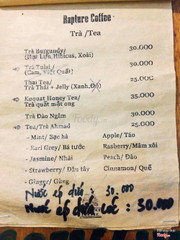 Rapture Coffee
Trà /Tea
Trà Burgundy/ 30.000
(Bạc Lưu, Hibicus, Xoài)
Trà Tulsi/ 30.000
(Cam, Quất)
Thai Tea/ 25.000
Trà Thái + Jelly (Xanh,
Kopoat Honey Tea/ 35.000
Trà quất mật ong
Trà Đào Ngâm 30.000
Tea/Trà Ahmad 25.000
- Mint/ Bạc hà Apple/ Táo
- Earl Grey/ Bá tước Rasberry/ Mâm xôi
- Jasmine/ Nhài Peach/ Đào
- Strawberry/ Dâu tây Cinnamon/ Quế
- Ginger/ Gừng
Nước ép : 30.000
Nước ép : 30.000